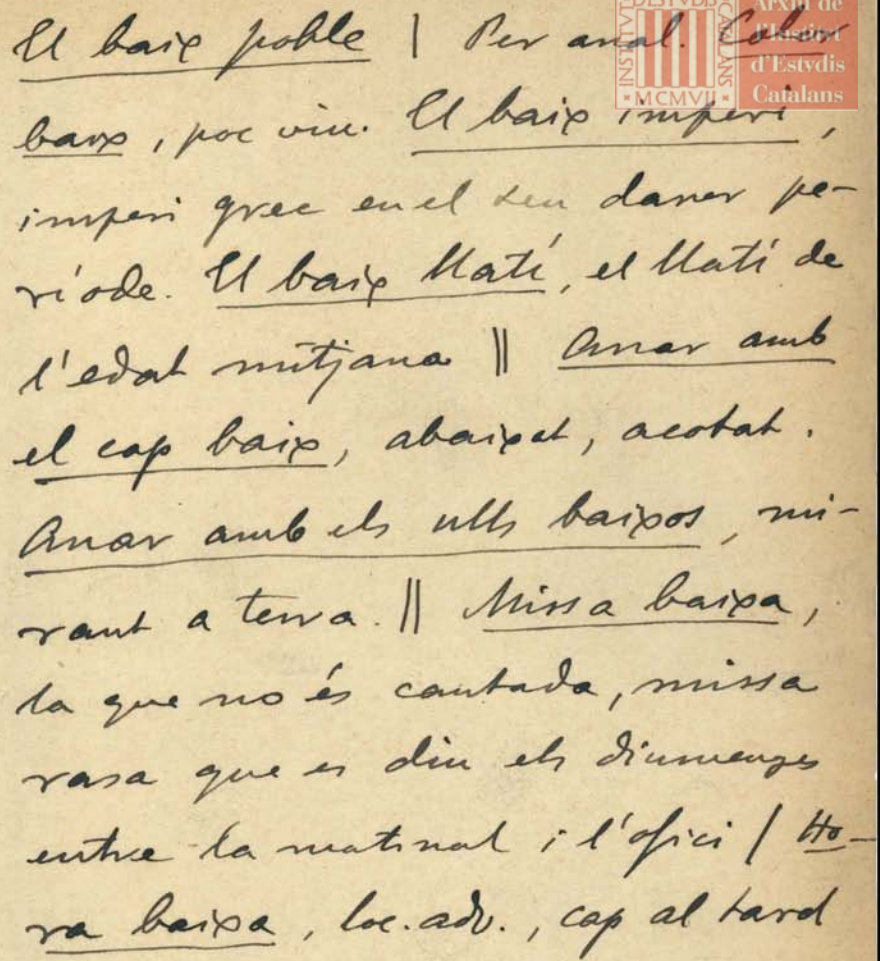 El baix poble | Per anal. Color
baix, poc viu. El baix imperi,
imperi grec en el seu darrer pe-
ríode. El baix llatí, el llatí de
l'edat mitjana || Anar amb
el cap baix, abaixat, acotat.
Anar amb els ulls baixos, mi-
rant a terra. || Missa baixa,
la que no és cantada, missa
rasa que es diu els diumenges
entre la matinal i l'ofici | Ho-
ra baixa, loc. adv., cap al tard
INSTITVT D'ESTVDIS CATALANS
MCMVII
Arxiu de
l'Institut
d'Estvdis
Catalans